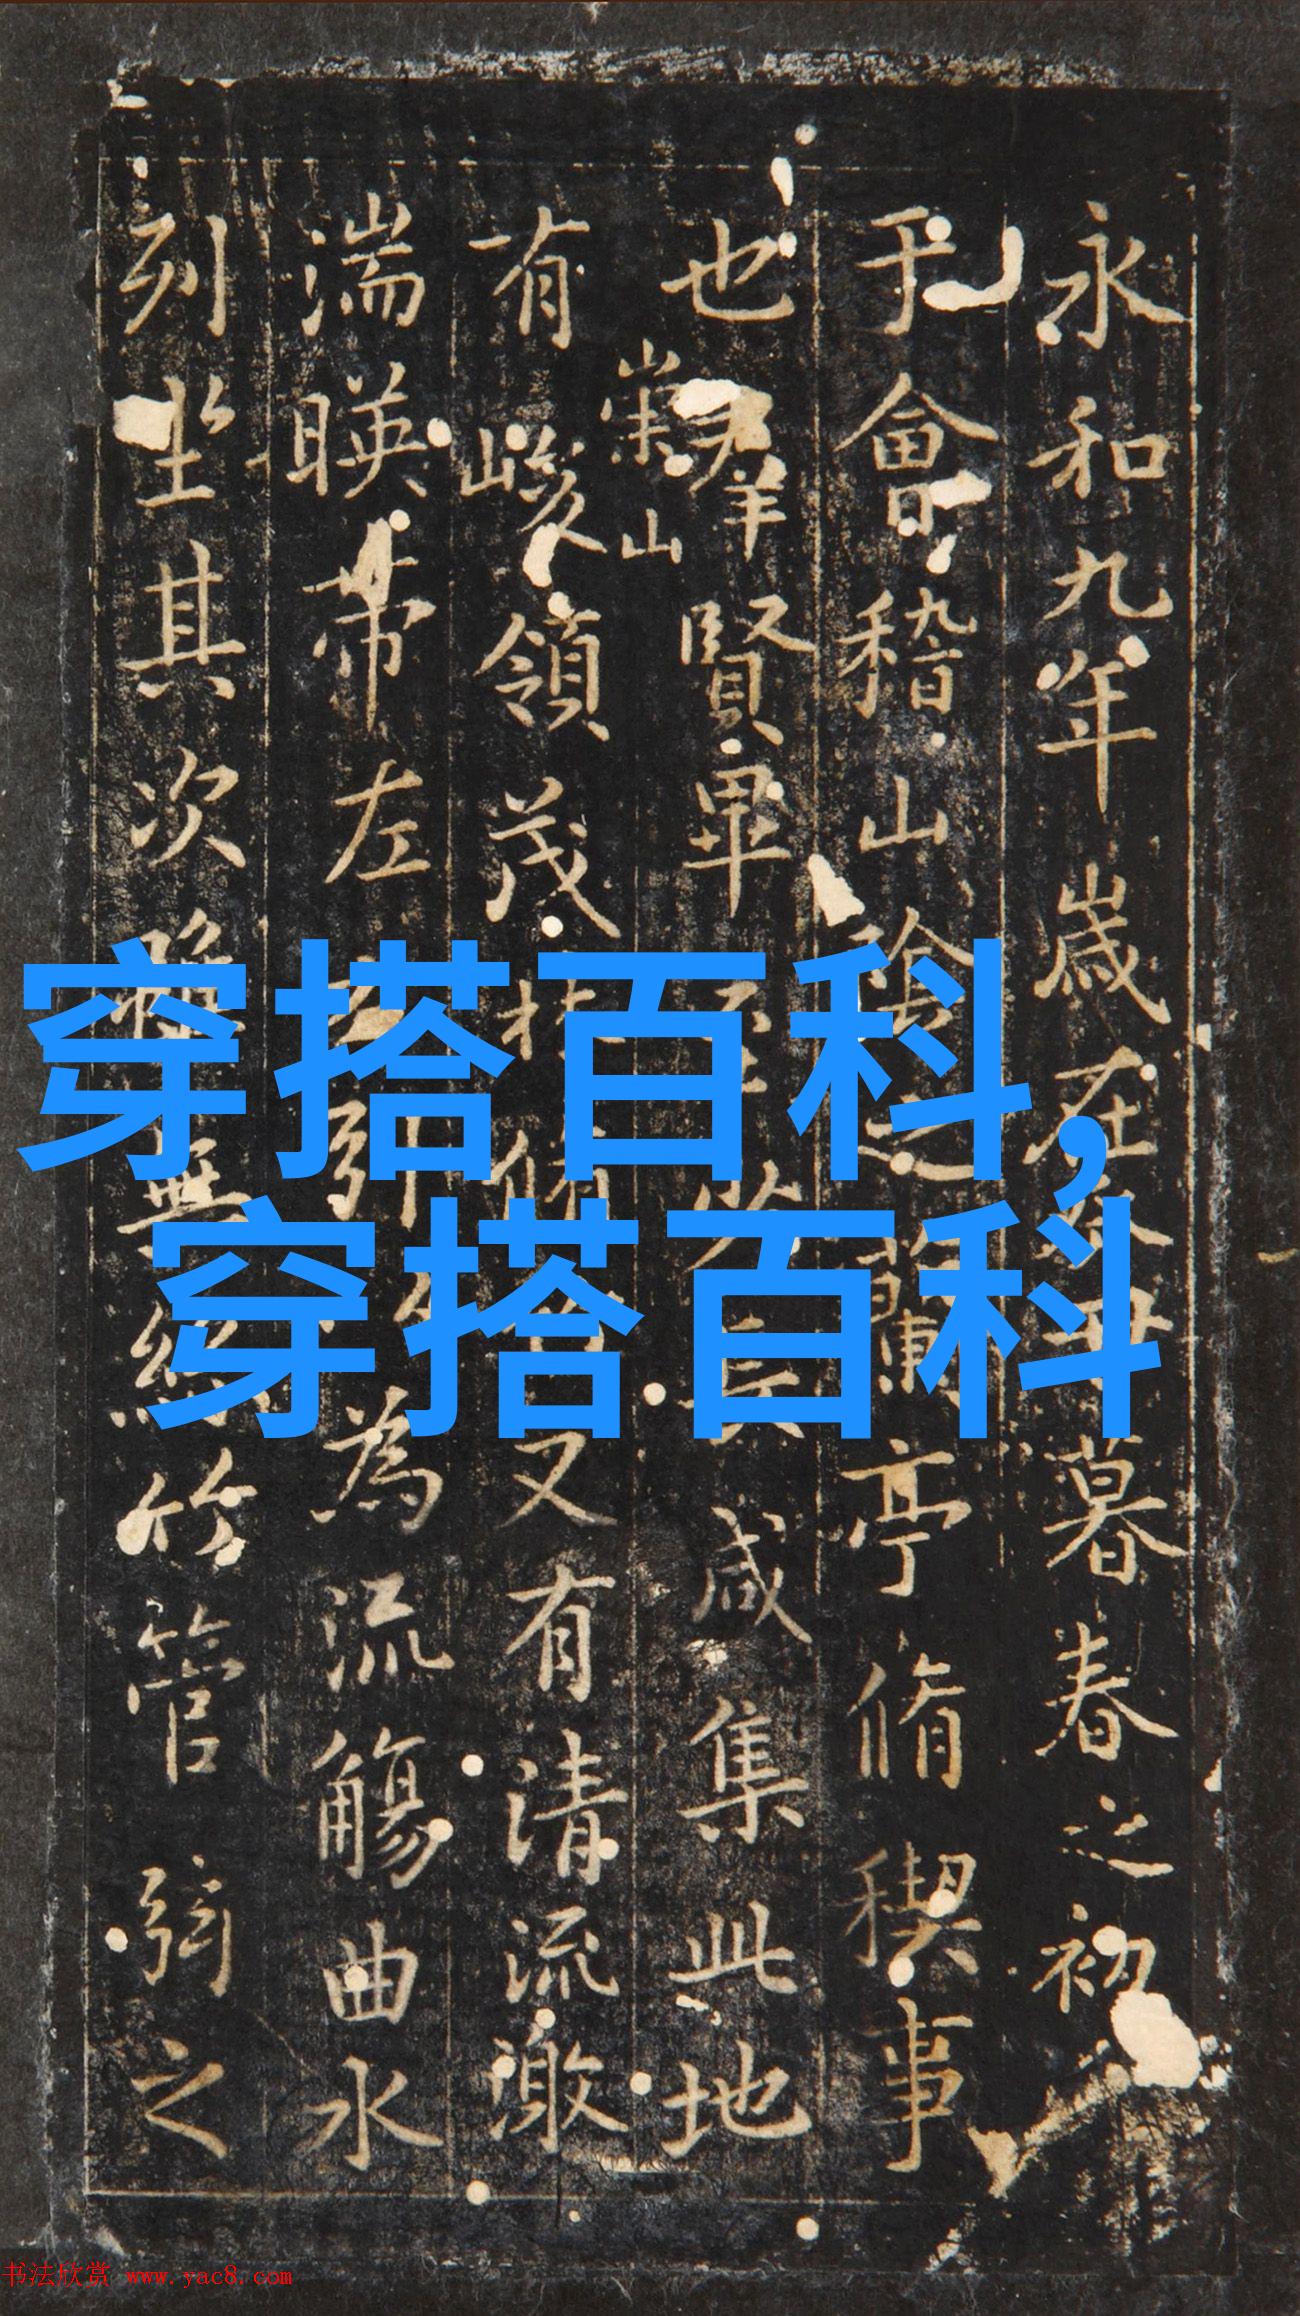 永和九年歲在癸丑暮春之初
于會稽山陰之蘭亭脩稧事
也羣賢畢至少長咸集此地
崇山
有峻領茂林脩竹又有清流激
湍暎帶左右引以為流觴曲水
列坐其次雖無絲竹管弦之
穿搭百科,
穿搭百科
书法欣赏 www.yac8.com